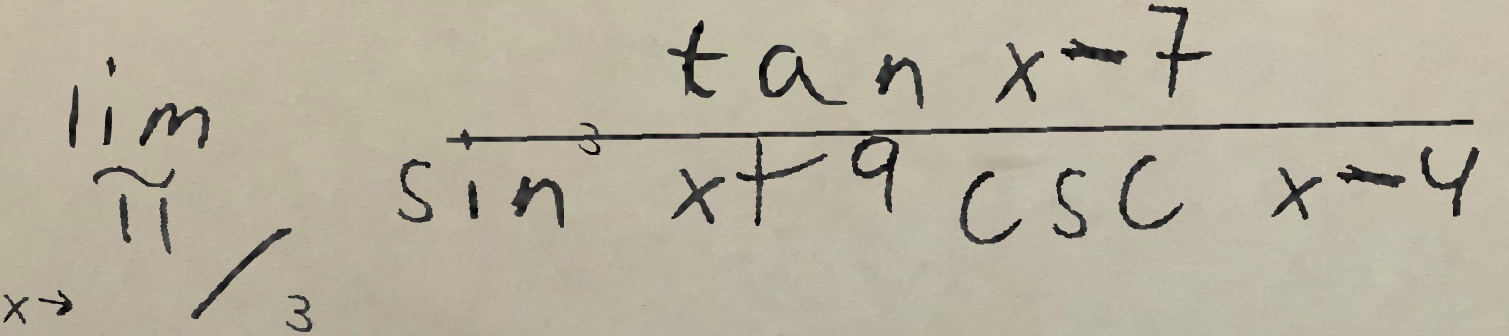 lim x→π/3 (tan x - 7)/(sin³ x + 9 csc x - 4)